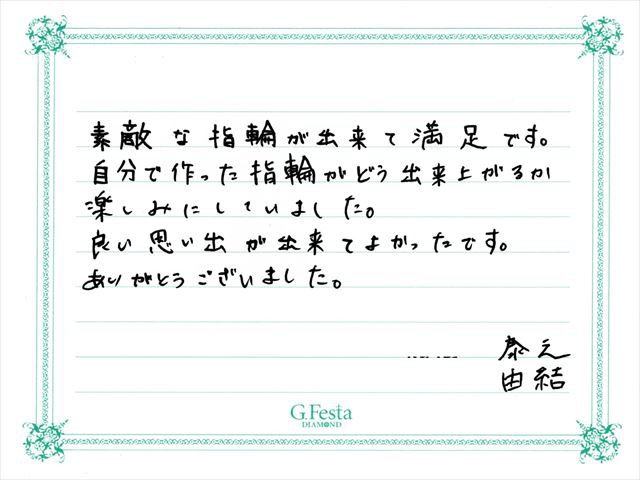 素敵な指輪が出来て満足です。
自分で作った指輪がどう出来上がるか
楽しみにしていました。
良い思い出が出来てよかったです。
ありがとうございました。
泰之
由結
G.Festa
DIAMOND